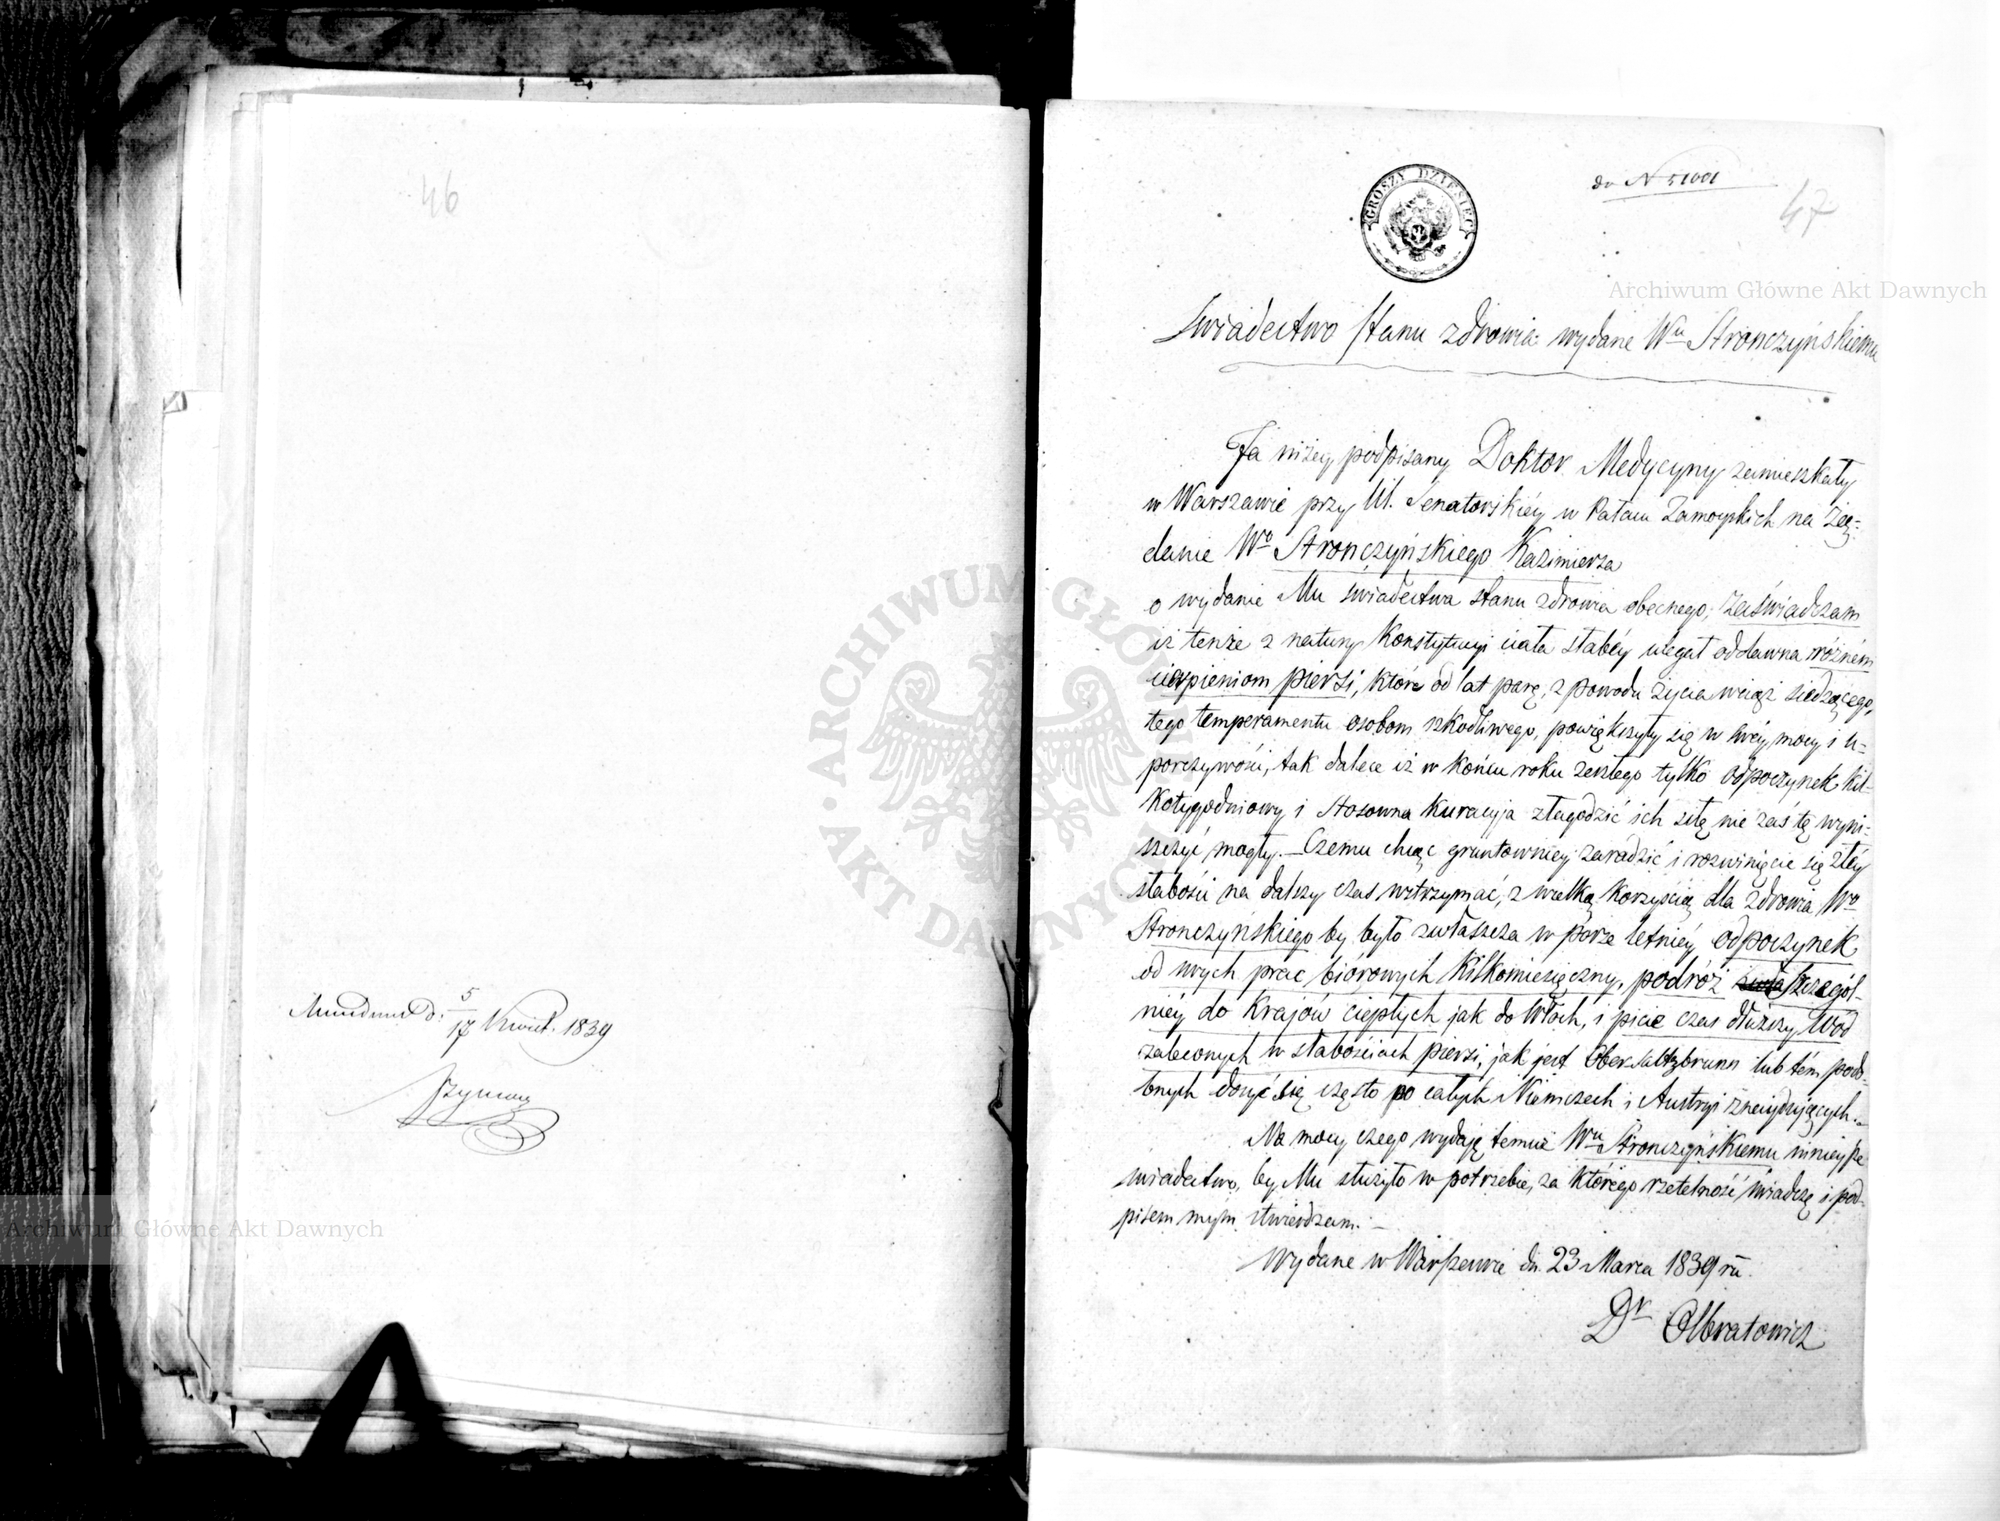 46
Mundum d. 5/17 Kwiet. 1839
GROSZY DZIESIĘĆ
do N
47
Archiwum Główne Akt Dawnych
Swiadectwo stanu zdrowia wydane Wu Stronczyńskiemu
Ja niżey podpisany Doktor Medycyny zamieszkały
w Warszawie przy Ul. Senatorskiéy w Pałacu Zamoyskich na żą-
danie Wo Stronczyńskiego Kazimierza
o wydanie Mu świadectwa stanu zdrowia obecnego, zaświadczam
iż tenże z natury Konstytucyi ciała słabéy ulegał oddawna różném
cierpieniom piersi, które od lat parę, z powodu życia wciąż siedzącego,
tego temperamentu osobom szkodliwego, powiększyły się w swéy mocy i u-
porczywości, tak dalece iż w końcu roku zeszłego tylko odpoczynek kil-
kotygodniowy i stosowna kuracyja złagodzić ich siłę nie zaś tę wyni-
szczyć mogły. – Czemu chcąc gruntowniey zaradzić i rozwinięcie się złéy
słabości na dalszy czas wstrzymać, z wielką korzyścią dla zdrowia Wo
Stronczyńskiego by było zwłaszcza w porze letniéy odpoczynek
od swych prac biórowych kilkomiesięczny, podróż szczegól-
niéy do Krajów ciepłych jak do Włoch, i picie czas dłuższy Wód
zaleconych w słabościach piersi, jak jest Ober-saltzbrunn lub tém podo-
bnych dosyć się często po całych Niemczech i Austryi znaydujących. –
Na mocy czego wydaję temuż Wu Stronczyńskiemu ninieysze
świadectwo, by Mu służyło w potrzebie, za którego rzetelność świadczę i pod-
pisem mym stwierdzam. –
Wydane w Warszawie dn. 23 Marca 1839 ru.
Dr Olbratowicz
ARCHIWUM GŁÓWNE AKT DAWNYCH
Archiwum Główne Akt Dawnych